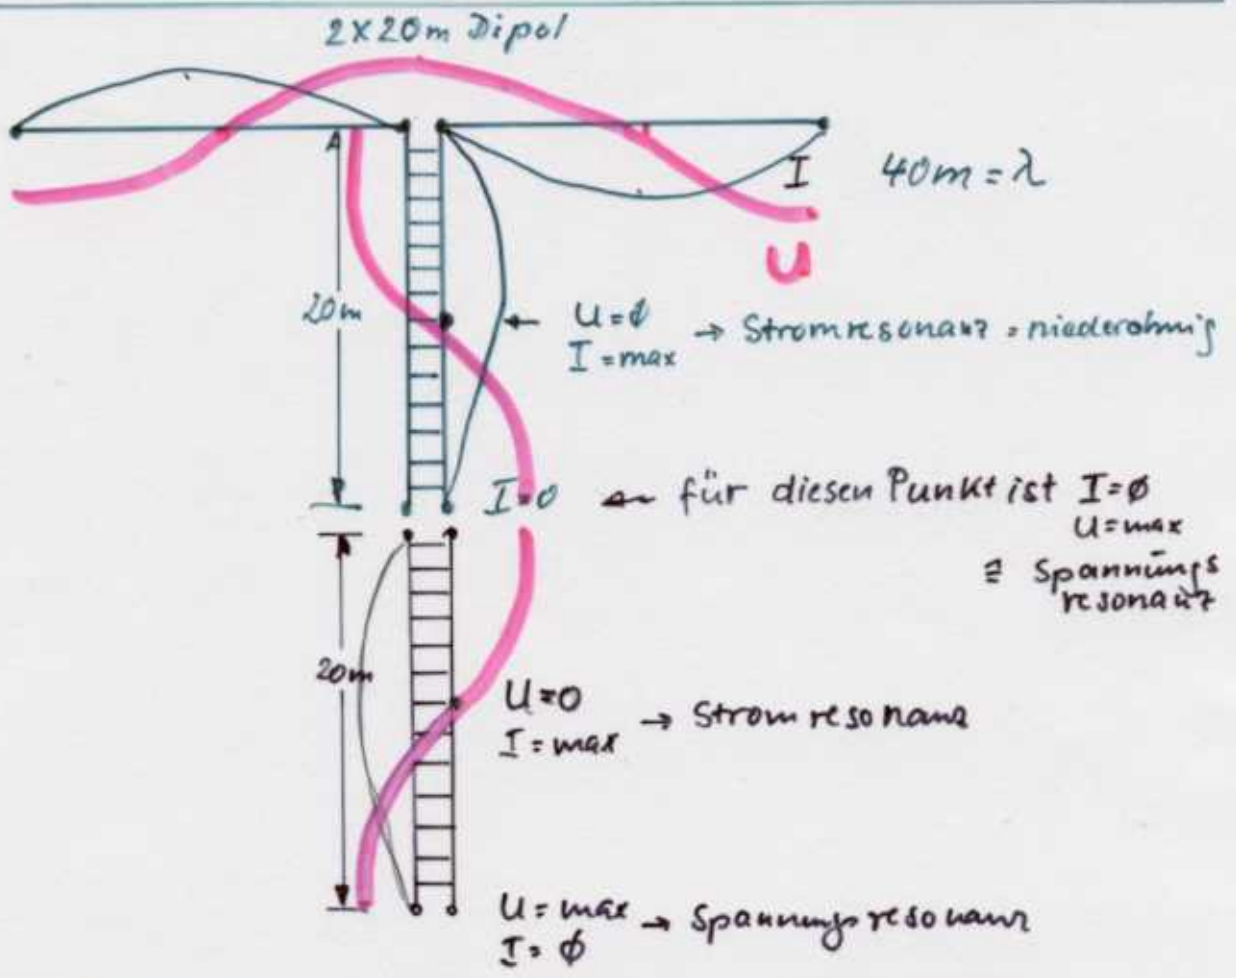 2x20m Dipol
I
40m = λ
U
20m
U=∅
I=max
→ Stromresonanz = niederohmig
I=0
← für diesen Punkt ist I=∅
U=max
≙ Spannungs
resonanz
20m
U=0
I=max
→ Stromresonanz
U=max
I=∅
→ Spannungsresonanz